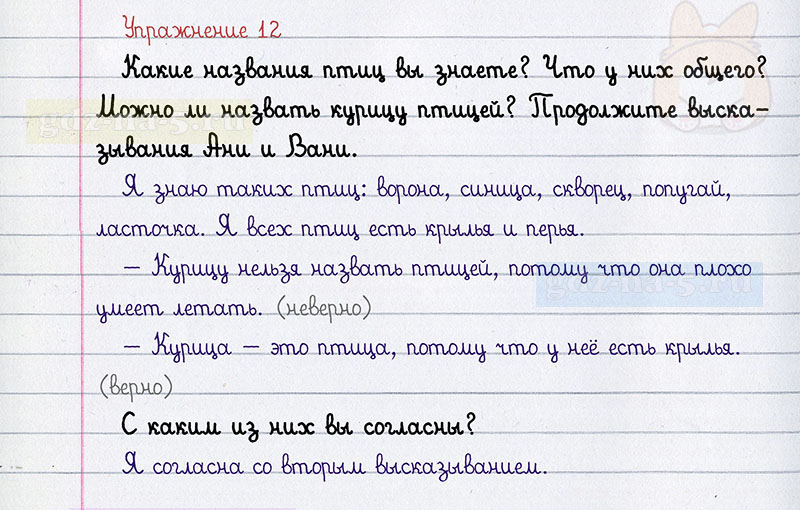 Упражнение 12
Какие названия птиц вы знаете? Что у них общего?
Можно ли назвать курицу птицей? Продолжите выска-
зывания Ани и Вани.
Я знаю таких птиц: ворона, синица, скворец, попугай,
ласточка. Я всех птиц есть крылья и перья.
— Курицу нельзя назвать птицей, потому что она плохо
умеет летать. (неверно)
— Курица — это птица, потому что у неё есть крылья.
(верно)
С каким из них вы согласны?
Я согласна со вторым высказыванием.
gdz-na-5.ru
gdz-na-5.ru